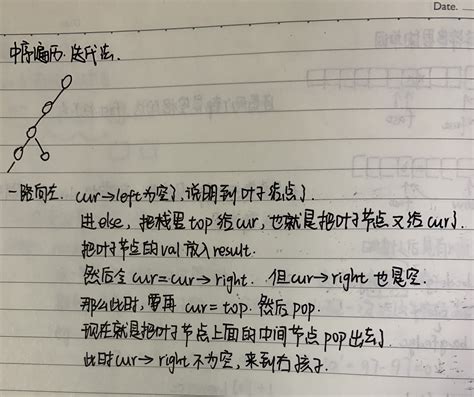 Date.
中序遍历. 迭代法.
一路向左. cur→left为空了, 说明到叶子结点了.
进else, 把栈里top给cur, 也就是把叶子节点又给cur了.
把叶子节点的val放入result.
然后令cur=cur→right. 但cur→right也是空.
那么此时, 要再cur=top. 然后pop.
现在就是把叶子节点上面的中间节点pop出去了.
此时cur→right不为空, 来到右孩子.